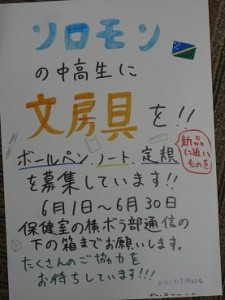 ソロモン
の中高生に
文房具を!!
新品に近いものを
ボールペン、ノート、定規
を募集しています!!
6月1日〜6月30日
保健室の横ボラ部通信の
下の箱までお願いします。
たくさんのご協力を
お待ちしています!!!